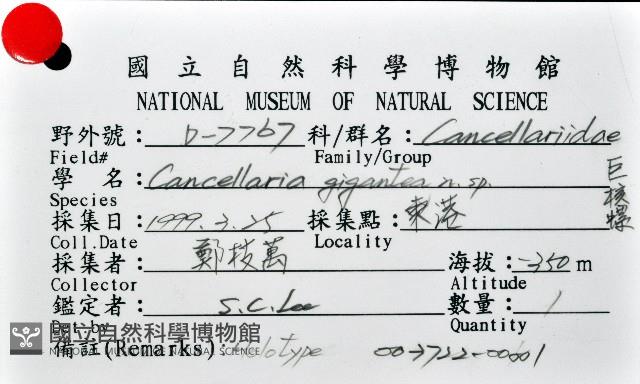 國立自然科學博物館
NATIONAL MUSEUM OF NATURAL SCIENCE
野外號: D-7767 科/群名: Cancellariidae
Field# Family/Group
學 名: Cancellaria gigantea n.sp. 巨核螺
Species
採集日: 1999.3.25 採集點: 東港
Coll.Date Locality
採集者: 鄭枝萬 海拔: -350 m
Collector Altitude
鑑定者: S.C.Lee 數量: 1
Det.by Quantity
國立自然科學博物館
NATIONAL MUSEUM OF NATURAL SCIENCE
備註(Remarks) Holotype 003722-00001